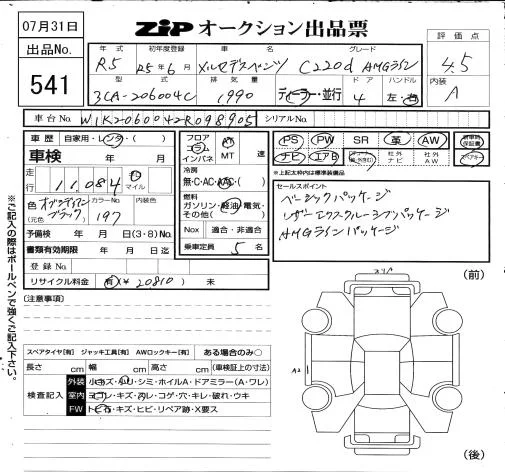 07月31日
ZiP オークション出品票
出品No.
541
年式 初年度登録 車名 グレード
R.5 R5年6月 メルセデスベンツ C220d AMGライン
評価点
4.5
型式 排気量 ドア ハンドル
3CA-206004C 1990 ディーラー・並行 4 左・右
内装
A
車台No. W1K2060042R098905 シリアルNo.
車歴 自家用・レンタ・( )
車検 年 月
走行 11,084 キロ マイル
色 オブシディアンブラック
(元色)
カラーNo. 197
予備検 年 月 日 (3・8) No.
書類有効期限 年 月 日迄
登録No.
リサイクル料金 有(¥20810) 未
フロア コラム インパネ
AT MT 速
冷房
無・AC・AAC・( )
燃料
ガソリン・軽油・電気・その他( )
Nox 適合・非適合
乗車定員 5 名
PS PW SR 革 AW
ナビ エアB
社外ナビ 社外AW
新車時保証書
スペアキー
※上記太枠内は標準装備品
セールスポイント
ベーシックパッケージ
レザーエクスクルーシブパッケージ
AMGラインパッケージ
(注意事項)
スペアタイヤ[有] ジャッキ工具[有] AWロックキー[有] ある場合のみ○
長さ cm 幅 cm 高さ cm (車検証上の寸法)
検査記入
外装 小キズ・小凹・シミ・ホイルA・ドアミラー(A・ワレ)
室内 ヨゴレ・キズ・スレ・コゲ・穴・キレ・破れ・ウキ
FW トビ石・キズ・ヒビ・リペア跡・X要ス
(前)
A2
(後)
※ご記入の際はボールペンで強くご記入下さい。